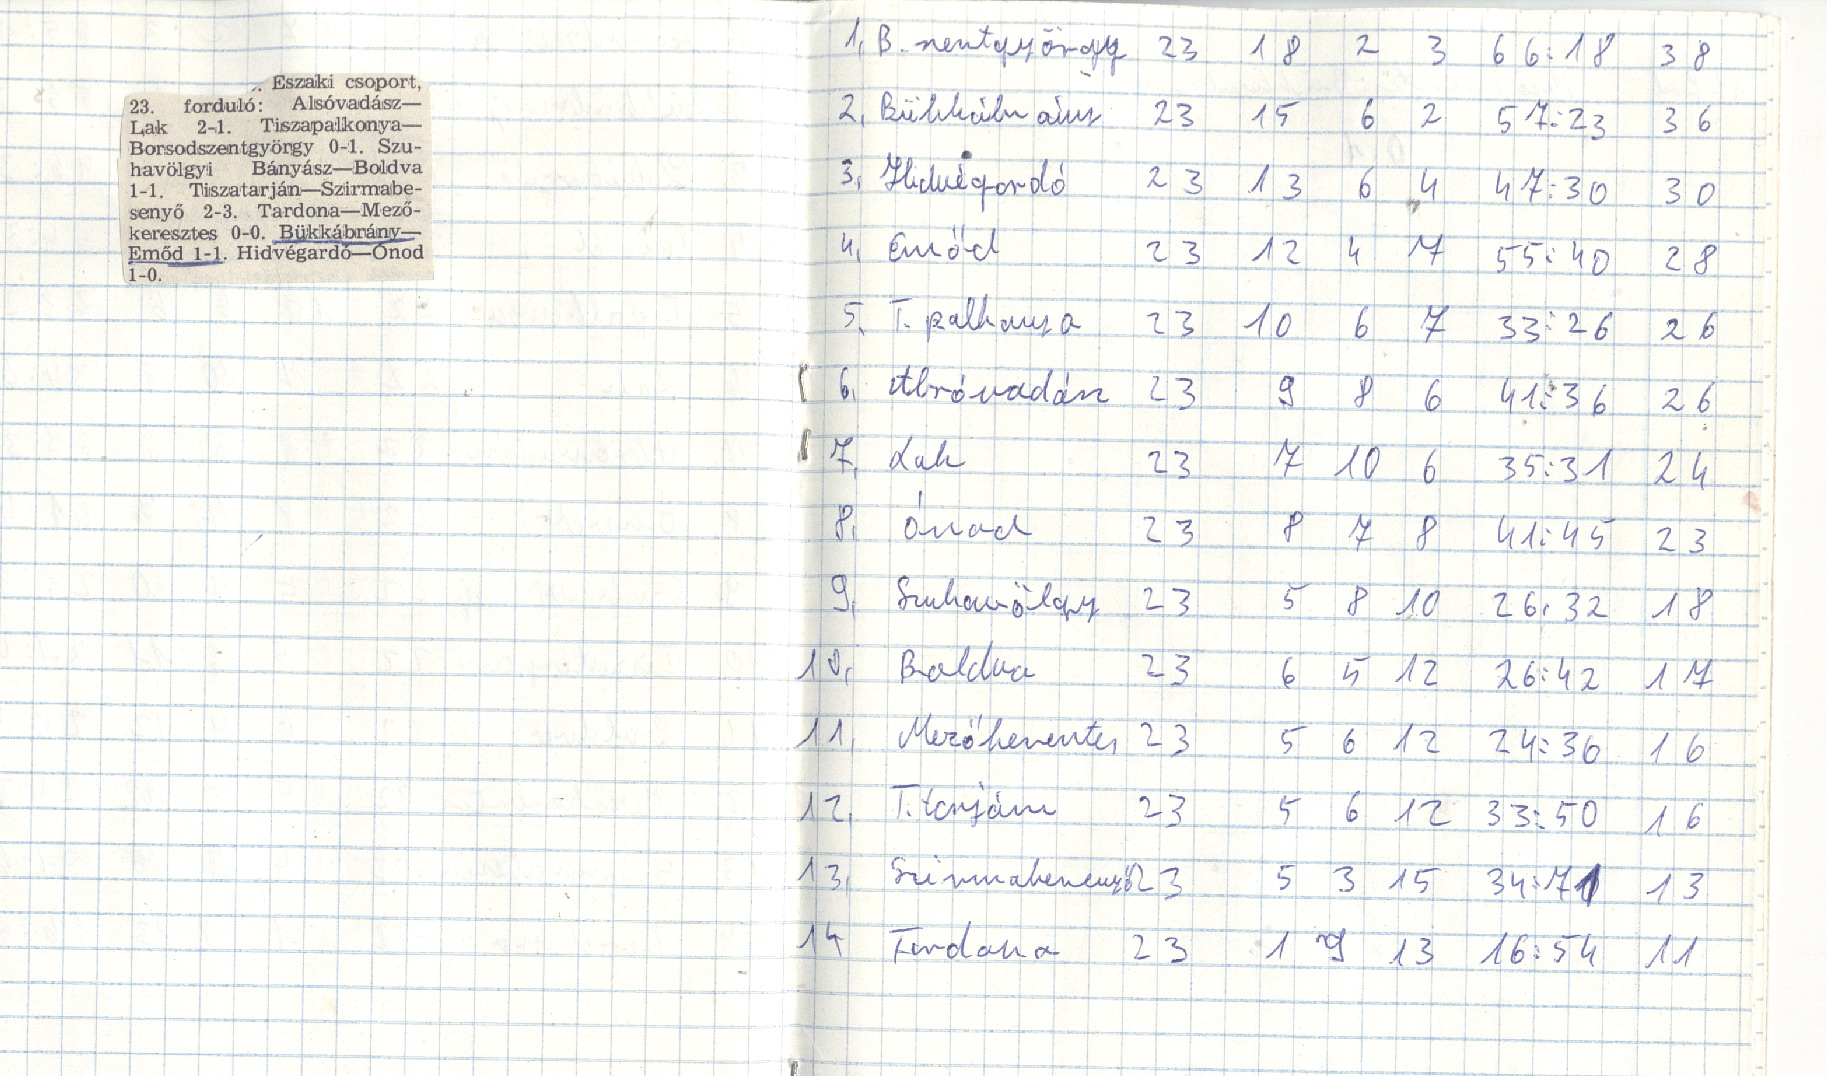 . Északi csoport,
23. forduló: Alsóvadász—
Lak 2-1. Tiszapalkonya—
Borsodszentgyörgy 0-1. Szu-
havölgyi Bányász—Boldva
1-1. Tiszatarján—Szirmabe-
senyő 2-3. Tardona—Mező-
keresztes 0-0. Bükkábrány—
Emőd 1-1. Hidvégardó—Ónod
1-0.
1, B. szentgyörgy 23 18 2 3 66:18 38
2, Bükkábrány 23 15 6 2 57:23 36
3, Hidvégardó 23 13 6 4 47:30 30
4, Emőd 23 12 4 7 55:40 28
5, T. palkonya 23 10 6 7 33:26 26
6, Alsóvadász 23 9 8 6 41:36 26
7, Lak 23 7 10 6 35:31 24
8, Ónod 23 8 7 8 41:45 23
9, Szuhavölgy 23 5 8 10 26:32 18
10, Boldva 23 6 5 12 26:42 17
11, Mezőkeresztes 23 5 6 12 24:36 16
12, T. tarján 23 5 6 12 33:50 16
13, Szirmabesenyő 23 5 3 15 34:71 13
14 Tardona 23 1 9 13 16:54 11